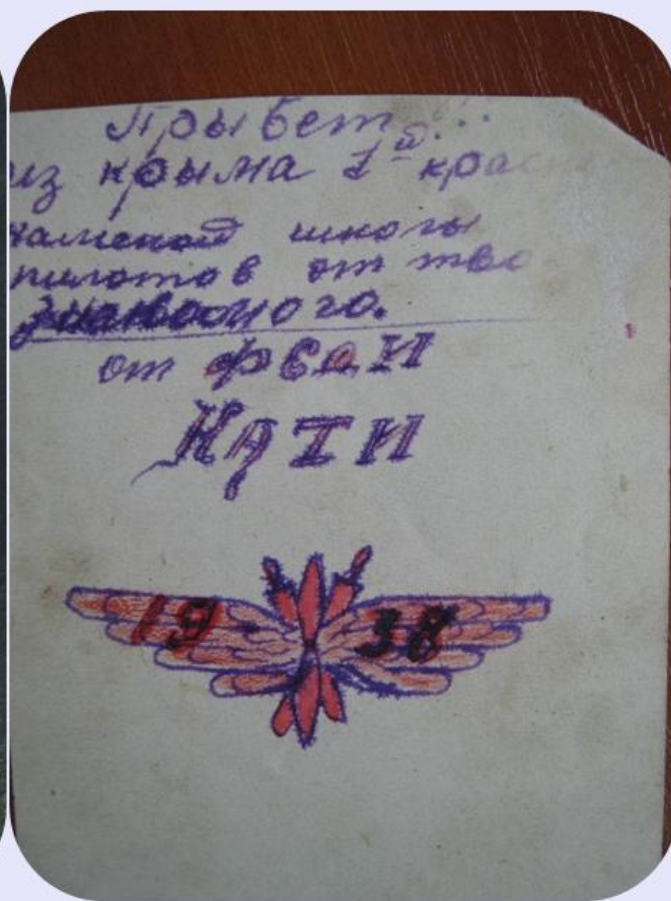 Прывет...
из крыма 1й крас
наменой школы
пилотов от тво
знакомого.
от ФЕДИ
КАТИ
19 38